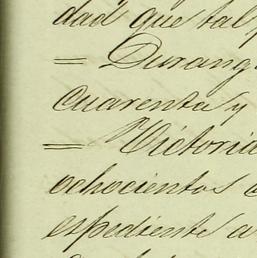 dad que tal
= Durang
cuarenta y
= Victoria
ochocientos
espediente a